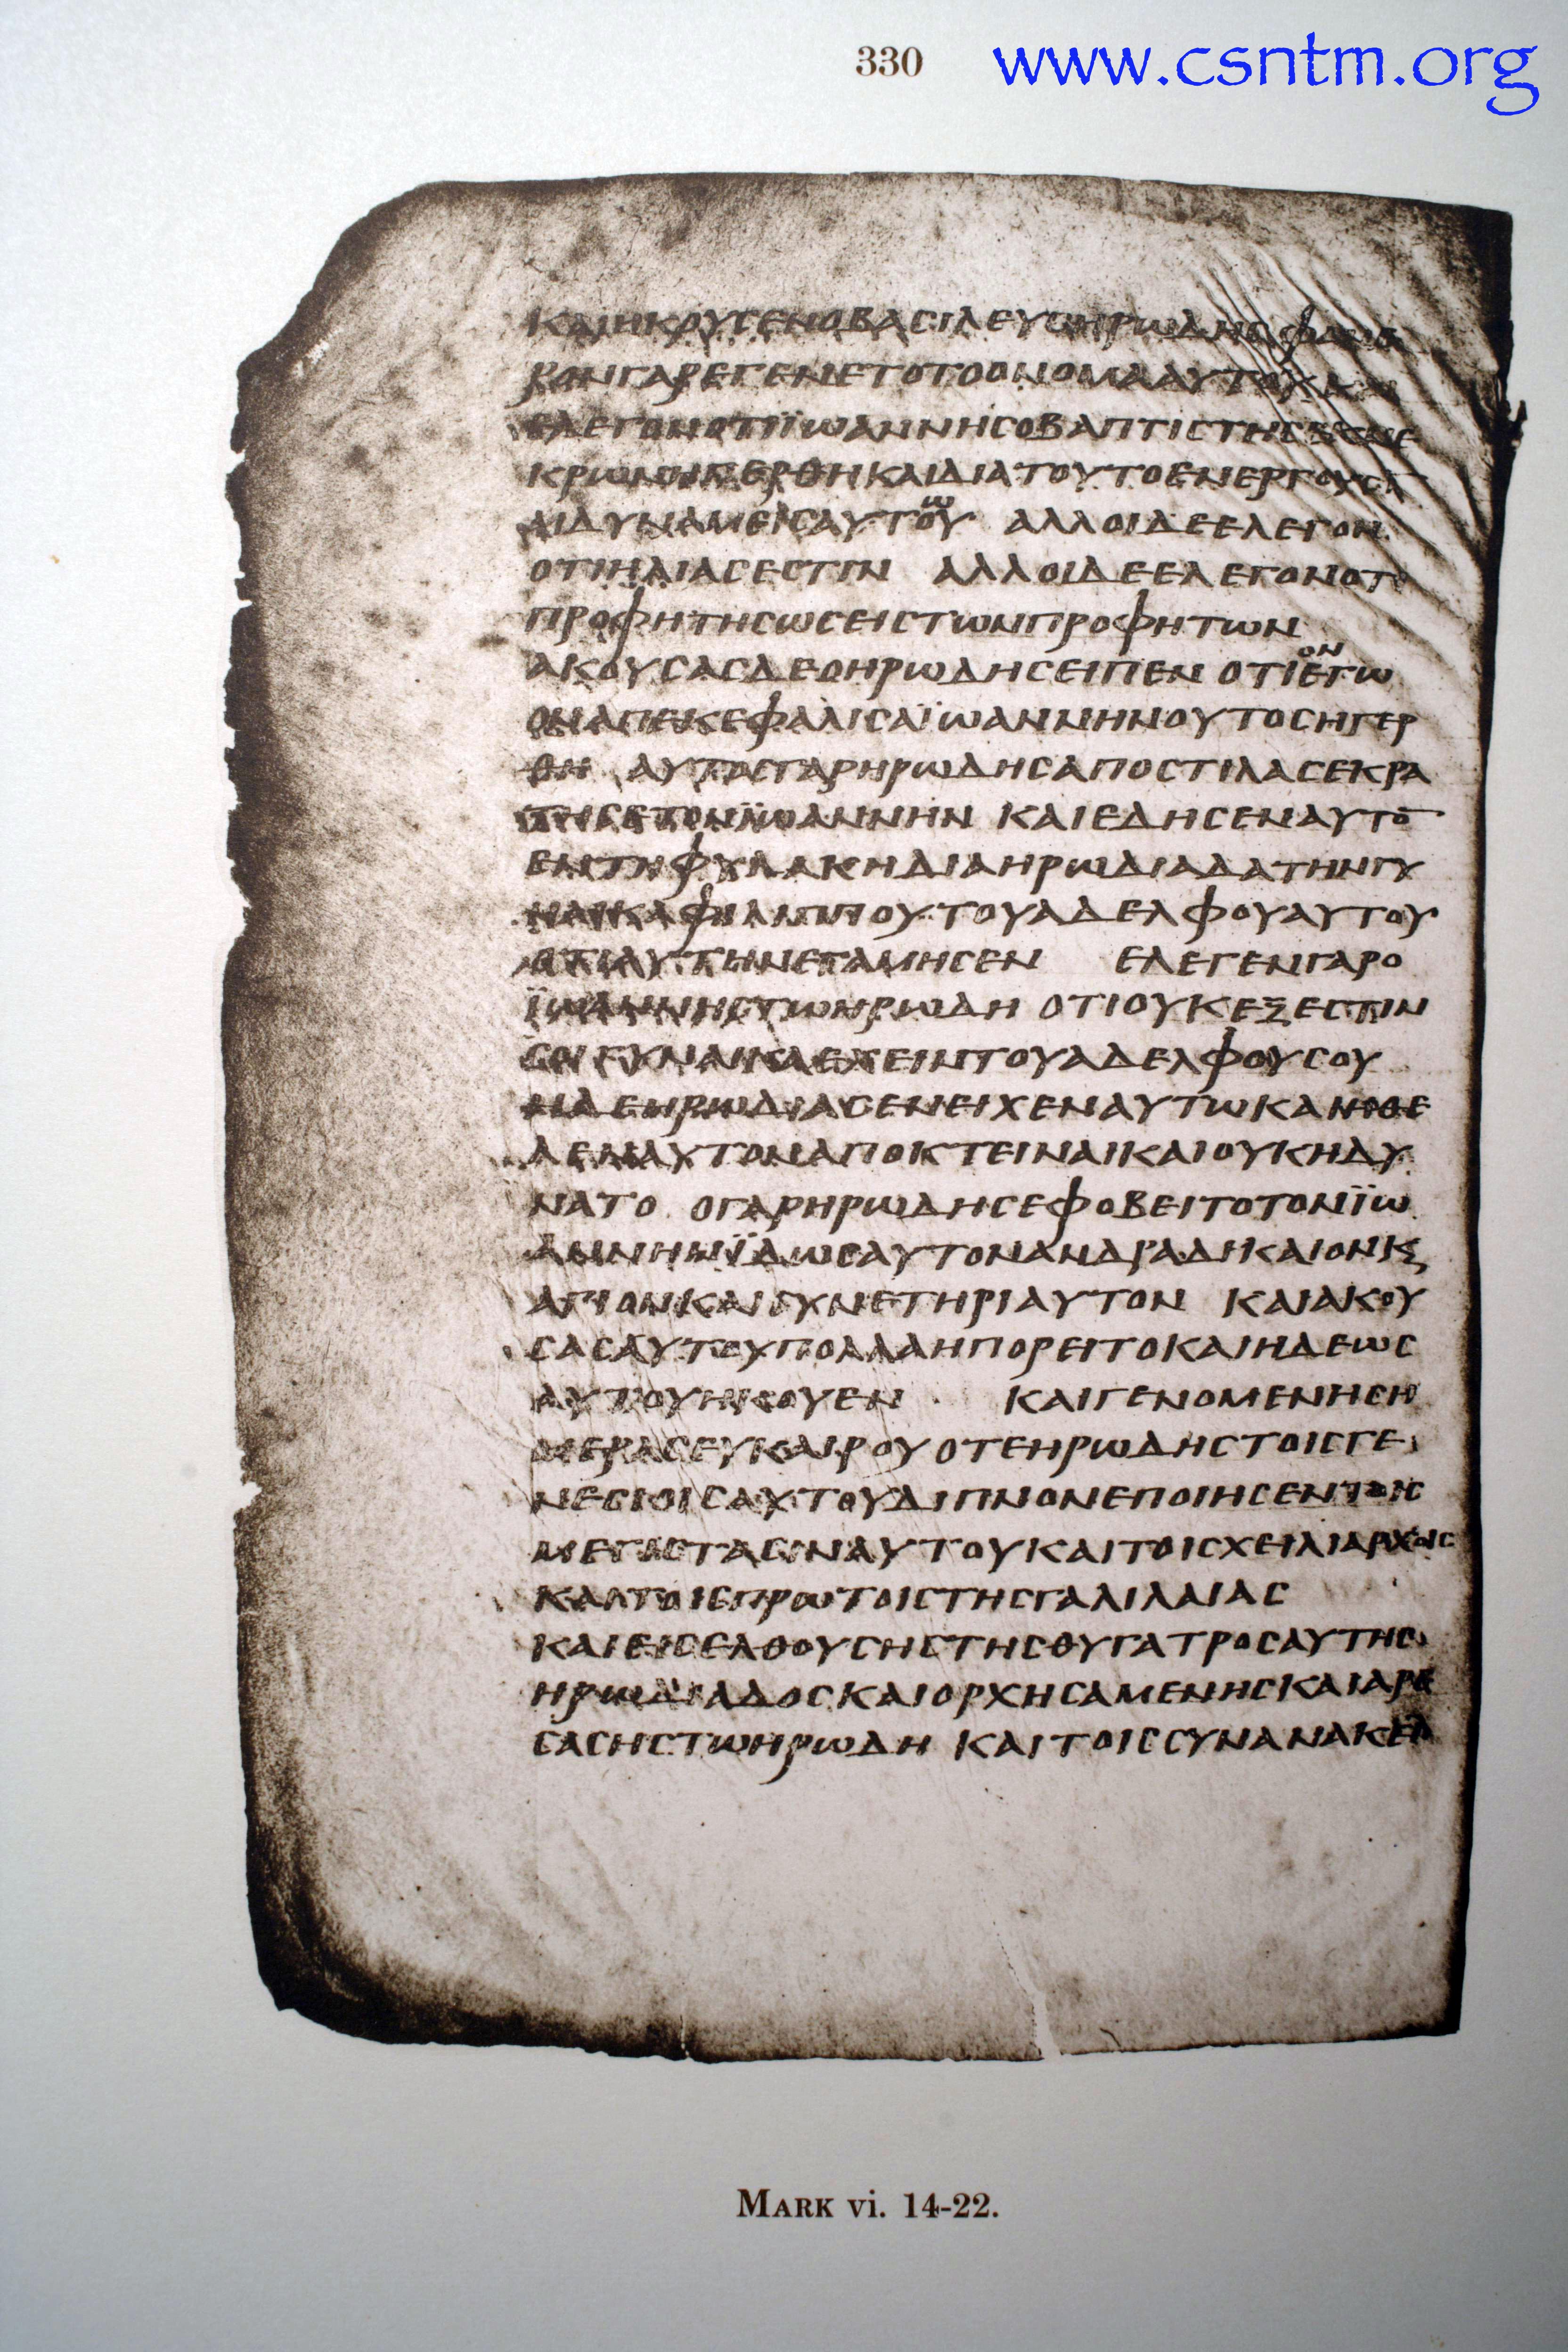 330
www.csntm.org
ΚΑΙΗΚΟΥΣΕΝΟΒΑϹΙΛΕΥϹΗΡΩΔΗϹΦΑΝΕ
ΡΟΝΓΑΡΕΓΕΝΕΤΟΤΟΟΝΟΜΑΑΥΤΟΥΚΑΙ
ΕΛΕΓΟΝΟΤΙΪΩΑΝΝΗϹΟΒΑΠΤΙϹΤΗϹΕΚΝΕ
ΚΡΩΝΗΓΕΡΘΗΚΑΙΔΙΑΤΟΥΤΟΕΝΕΡΓΟΥϹΙ
ΑΙΔΥΝΑΜΕΙϹΑΥΤΟΥ ΑΛΛΟΙΔΕΕΛΕΓΟΝ
ΟΤΙΗΛΙΑϹΕϹΤΙΝ ΑΛΛΟΙΔΕΕΛΕΓΟΝΟΤΙ
ΠΡΟΦΗΤΗϹΩϹΕΙϹΤΩΝΠΡΟΦΗΤΩΝ
ΟΝ
ΑΚΟΥϹΑϹΔΕΟΗΡΩΔΗϹΕΙΠΕΝ ΟΤΙΕΓΩ
ΟΝΑΠΕΚΕΦΑΛΙϹΑΪΩΑΝΝΗΝΟΥΤΟϹΗΓΕΡ
ΘΗ ΑΥΤΟϹΓΑΡΗΡΩΔΗϹΑΠΟϹΤΙΛΑϹΕΚΡΑ
ΤΗϹΕΤΟΝΪΩΑΝΝΗΝ ΚΑΙΕΔΗϹΕΝΑΥΤΟ̅
ΕΝΤΗΦΥΛΑΚΗΔΙΑΗΡΩΔΙΑΔΑΤΗΝΓΥ
ΝΑΙΚΑΦΙΛΙΠΠΟΥΤΟΥΑΔΕΛΦΟΥΑΥΤΟΥ
ΟΤΙΑΥΤΗΝΕΓΑΜΗϹΕΝ ΕΛΕΓΕΝΓΑΡΟ
ΪΩΑΝΝΗϹΤΩΗΡΩΔΗ ΟΤΙΟΥΚΕΞΕϹΤΙΝ
ϹΟΙΓΥΝΑΙΚΑΕΧΕΙΝΤΟΥΑΔΕΛΦΟΥϹΟΥ
ΗΔΕΗΡΩΔΙΑϹΕΝΕΙΧΕΝΑΥΤΩΚΑΙΗΘΕ
ΛΕΝΑΥΤΟΝΑΠΟΚΤΕΙΝΑΙΚΑΙΟΥΚΗΔΥ
ΝΑΤΟ ΟΓΑΡΗΡΩΔΗϹΕΦΟΒΕΙΤΟΤΟΝΪΩ
ΑΝΝΗΝΪΔΩϹΑΥΤΟΝΑΝΔΡΑΔΙΚΑΙΟΝΚϚ
ΑΓΙΟΝΚΑΙϹΥΝΕΤΗΡΙΑΥΤΟΝ ΚΑΙΑΚΟΥ
ϹΑϹΑΥΤΟΥΠΟΛΛΑΗΠΟΡΕΙΤΟΚΑΙΗΔΕΩϹ
ΑΥΤΟΥΗΚΟΥΕΝ ΚΑΙΓΕΝΟΜΕΝΗϹΗ
ΜΕΡΑϹΕΥΚΑΙΡΟΥΟΤΕΗΡΩΔΗϹΤΟΙϹΓΕ
ΝΕϹΙΟΙϹΑΥΤΟΥΔΙΠΝΟΝΕΠΟΙΗϹΕΝΤΟΙϹ
ΜΕΓΙϹΤΑϹΙΝΑΥΤΟΥΚΑΙΤΟΙϹΧΕΙΛΙΑΡΧΟΙϹ
ΚΑΙΤΟΙϹΠΡΩΤΟΙϹΤΗϹΓΑΛΙΛΑΙΑϹ
ΚΑΙΕΙϹΕΛΘΟΥϹΗϹΤΗϹΘΥΓΑΤΡΟϹΑΥΤΗϹ
ΗΡΩΔΙΑΔΟϹΚΑΙΟΡΧΗϹΑΜΕΝΗϹΚΑΙΑΡΕ
ϹΑϹΗϹΤΩΗΡΩΔΗ ΚΑΙΤΟΙϹϹΥΝΑΝΑΚΕΙ
MARK vi. 14-22.